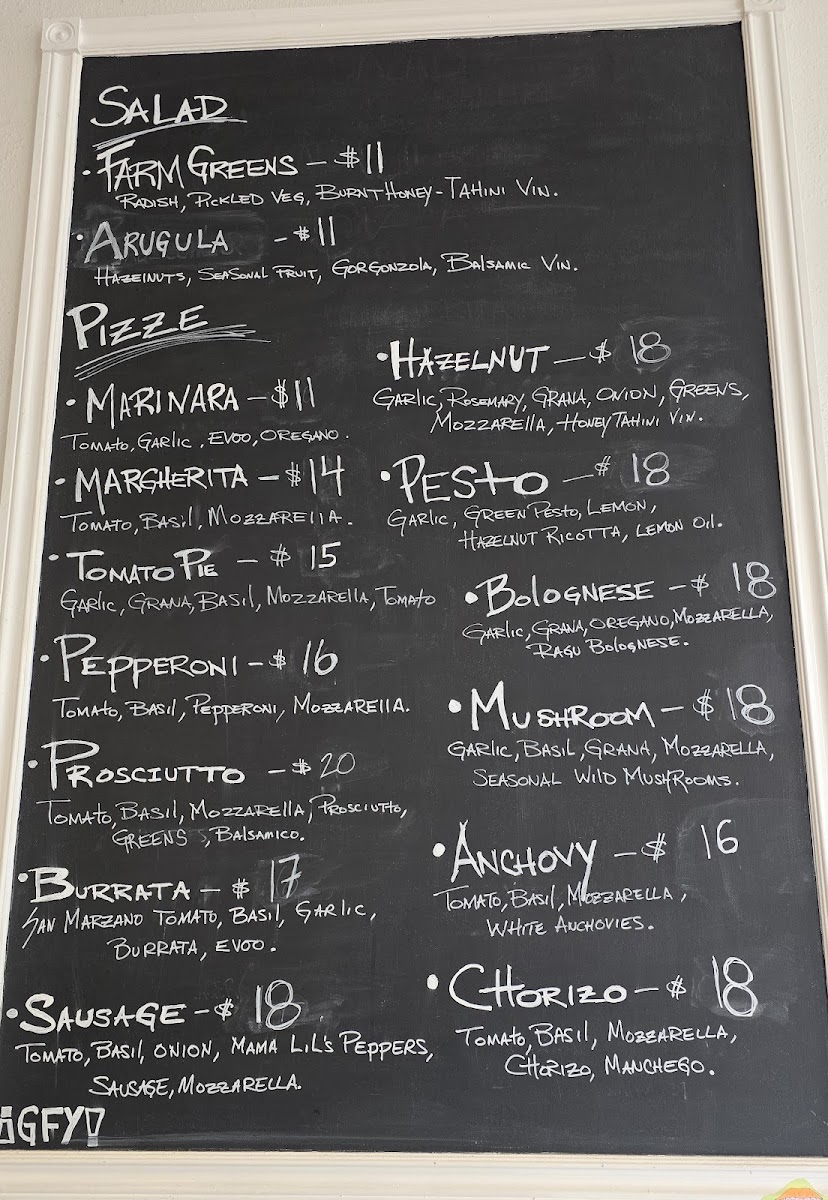 SALAD
• FARM GREENS – $11
RADISH, PICKLED VEG, BURNT HONEY-TAHINI VIN.
• ARUGULA – $11
HAZELNUTS, SEASONAL FRUIT, GORGONZOLA, BALSAMIC VIN.
PIZZE
• MARINARA – $11
TOMATO, GARLIC, EVOO, OREGANO.
• MARGHERITA – $14
TOMATO, BASIL, MOZZARELLA.
• TOMATO PIE – $ 15
GARLIC, GRANA, BASIL, MOZZARELLA, TOMATO
• PEPPERONI – $ 16
TOMATO, BASIL, PEPPERONI, MOZZARELLA.
• PROSCIUTTO – $ 20
TOMATO, BASIL, MOZZARELLA, PROSCIUTTO,
GREENS, BALSAMICO.
• BURRATA – $ 17
SAN MARZANO TOMATO, BASIL, GARLIC,
BURRATA, EVOO.
• SAUSAGE – $ 18
TOMATO, BASIL, ONION, MAMA LIL'S PEPPERS,
SAUSAGE, MOZZARELLA.
¡GFY!
• HAZELNUT – $ 18
GARLIC, ROSEMARY, GRANA, ONION, GREENS,
MOZZARELLA, HONEY TAHINI VIN.
• PESTO – $ 18
GARLIC, GREEN PESTO, LEMON,
HAZELNUT RICOTTA, LEMON OIL.
• BOLOGNESE – $ 18
GARLIC, GRANA, OREGANO, MOZZARELLA,
RAGU BOLOGNESE.
• MUSHROOM – $ 18
GARLIC, BASIL, GRANA, MOZZARELLA,
SEASONAL WILD MUSHROOMS.
• ANCHOVY – $ 16
TOMATO, BASIL, MOZZARELLA,
WHITE ANCHOVIES.
• CHORIZO – $ 18
TOMATO, BASIL, MOZZARELLA,
CHORIZO, MANCHEGO.